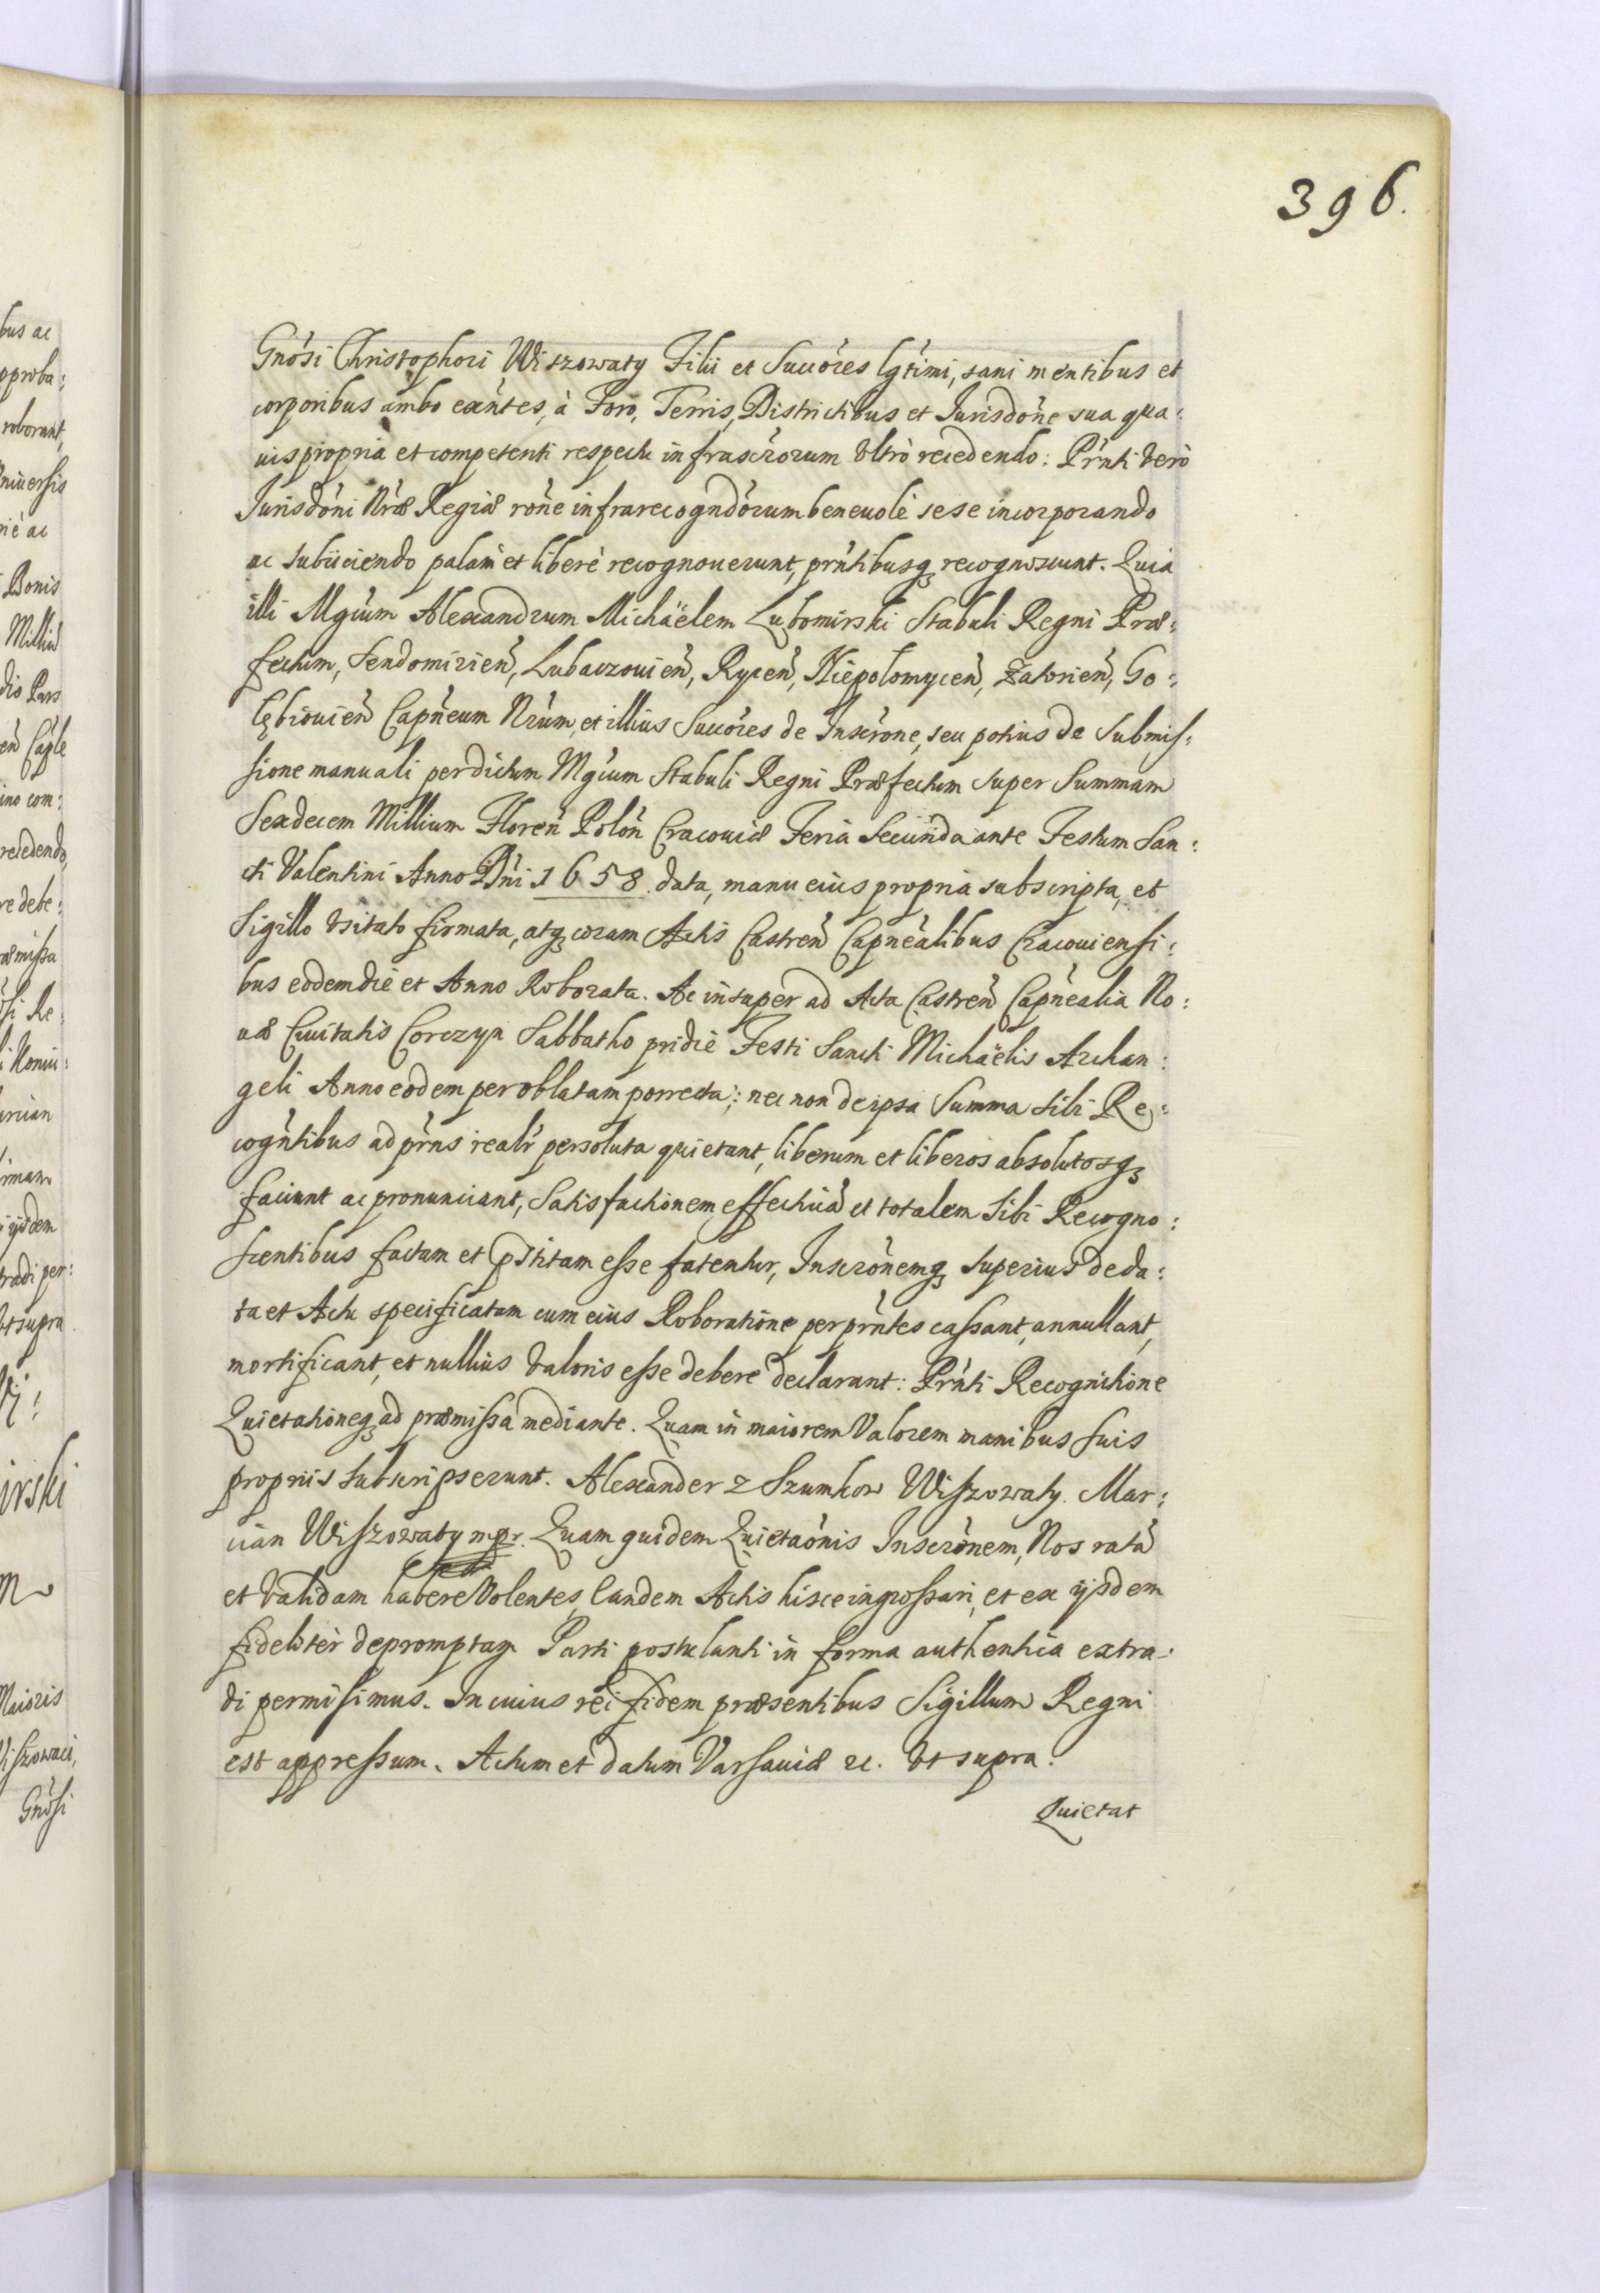 396.
Gnósi Christophori Wiszowaty Filii et Succóres lgt̃imi, sani mentibus et
corporibus ambo exñtes, à Foro, Terris, Districtibus et Jurisdõne sua qua:
uis propria et competenti respectu infrascr̃orum Vltrò recedendo: Prñti Verò
Jurisdõni Nr̃æ Regiæ rõne infrarecogndõrum beneuolè sese incorporando
ac subijciendo palam et liberè recognouerunt, prñtibusq recognoscunt. Quia
illi Mg̃cum Alexandrum Michaëlem Lubomirski Stabuli Regni Præ:
fectum, Sendomirieñ, Lubaczouieñ, Ryceñ, Niepolomyceñ, Zatorieñ, Go:
lębiouieñ Capñeum Nr̃um, et illius Succóres de Inscr̃one, seu potius de Submis:
sione manuali per dictum Mg̃cum Stabuli Regni Præfectum super Summam
Sexdecem Millium Floreñ Poloñ Cracouiæ Feria Secunda ante Festum San:
cti Valentini Anno Dñi 1658. data, manu eius propria subscripta, et
Sigillo Vsitato firmata, atq coram Actis Castreñ Capñealibus Cracouiensi:
bus eodem die et Anno Roborata. Ac insuper ad Acta Castreñ Capñealia No:
uæ Ciuitatis Corczyn Sabbatho pridie Festi Sancti Michaëlis Archan:
geli Anno eodem per oblatam porrecta; nec non de ipsa Summa sibi Re:
cogñtibus ad prñs realr̃ persoluta quietant, liberum et liberos absolutosq
faciunt ac pronunciant, Satisfactionem effectiuã et totalem Sibi Recogno:
scentibus factam et pstitam esse fatentur, Inscr̃onemq Superius de da:
ta et Actu specificatam cum eius Roboratione per prñtes cassant, annullant,
mortificant, et nullius Valoris esse debere declarant: Prñti Recognitione
Quietationeq ad præmissa mediante. Quam in maiorem Valorem manibus suis
proprijs subscripserunt. Alexander z Szumkow Wiszowaty. Mar:
cian Wiszowaty mpr. Quam quidem Quietaõnis Inscr̃onem, Nos ratã
et Validam habere Volentes, Eandem Actis hisce ingrossari, et ex ijsdem
fideliter depromptam Parti postulanti in forma authentica extra:
di permisimus. In cuius rei fidem præsentibus Sigillum Regni
est appressum. Actum et datum Varsauiæ &c. Vt supra.
Quietat